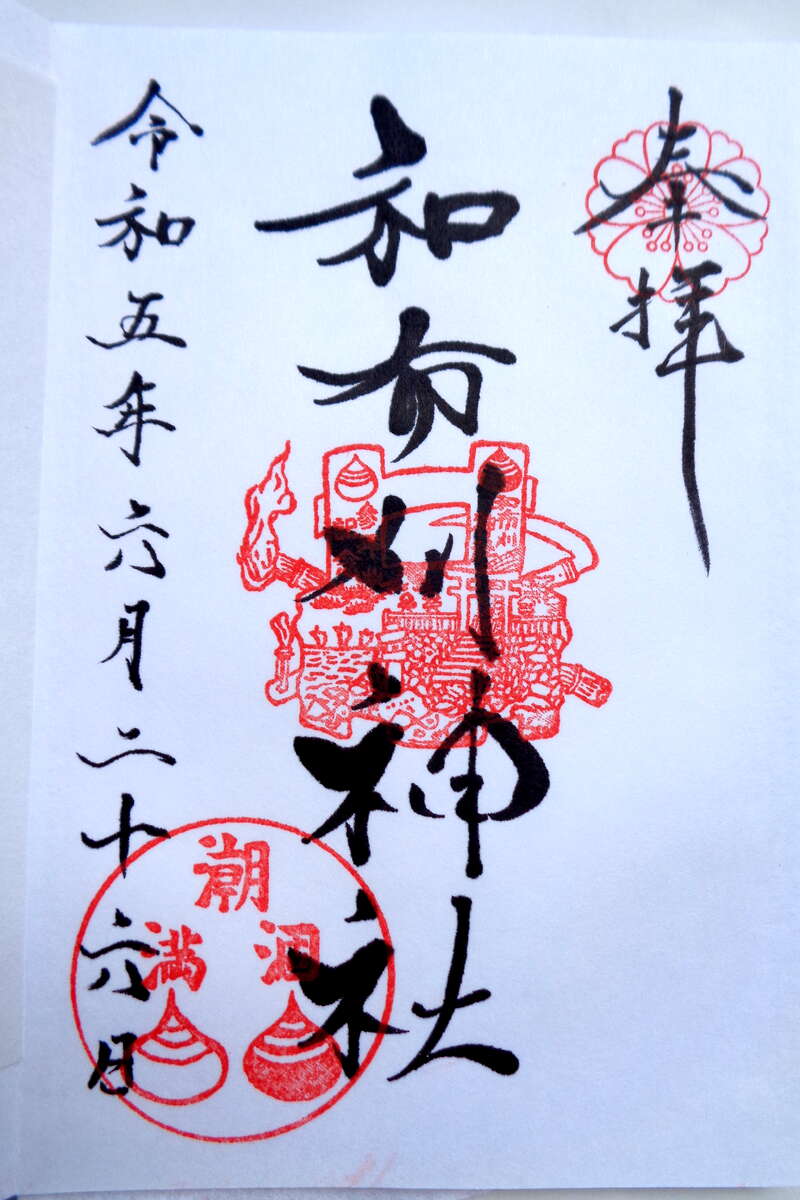 奉拝
和布刈神社
和布刈
令和五年六月二十六日
潮
満